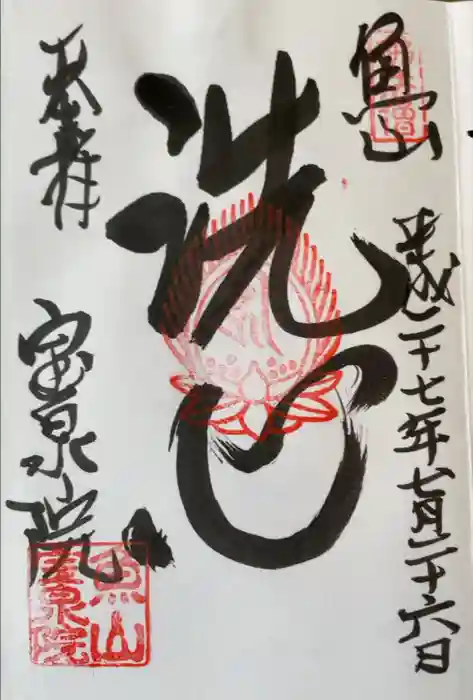 魚山
平成二十七年七月二十六日
洗心
宝泉院
魚山
宝泉院